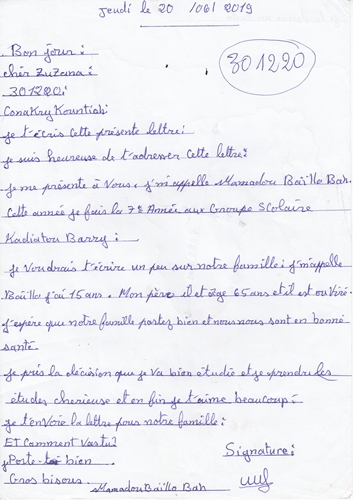 Jeudi le 20 /06/ 2019
Bon jour:
301220
chèr Zuzana:
301220:
Conakry Kountiah:
je t'écris cette présente lettre:
je suis heureuse de t'adresser cette lettre:
je me présente à Vous, j'm'appelle Mamadou Baïllo Bah.
Cette année je fais la 7e Année aux Groupe Scolaire
Kadiatou Barry:
je Voudrais t'écrire un peu sur notre famille: j'm'appelle
Baïllo j'ai 15 ans. Mon père il et âge 65 ans et il est ouvrié.
j'espère que notre famille portez bien et nous nous sont en bonne
santé.
je pris la décision que je va bien étudié et je prendre les
études cherieuse et en fin je t'aime beaucoup:
je t'envoie la lettre pour notre famille:
ET Comment Vas tu?
Signature:
Porte-toi bien
Gros bisous.
Mamadou Baïllo Bah